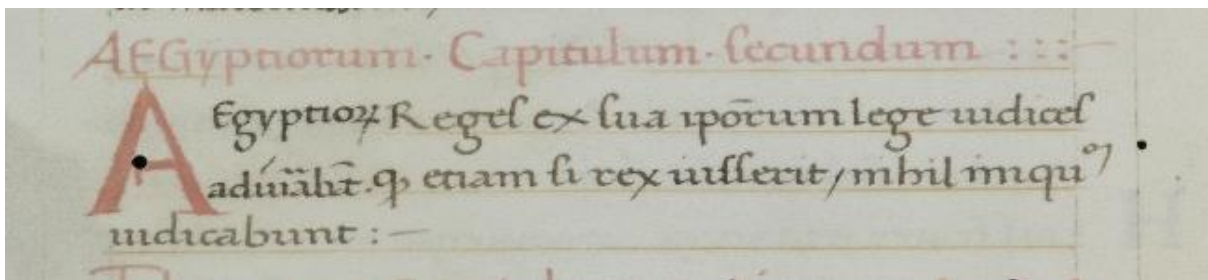 AEGyptiorum · Capitulum · secundum : : : —
AEgyptioꝝ Regeſ ex ſua ipōrum lege iudiceſ
ꝙ etiam ſi rex iuſſerit / nihil iniqu
iudicabunt : —